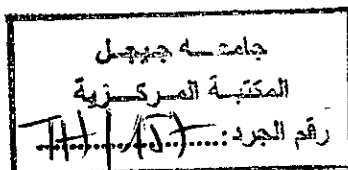 جامعة جيجل
المكتبة المركزية
رقم الجرد: